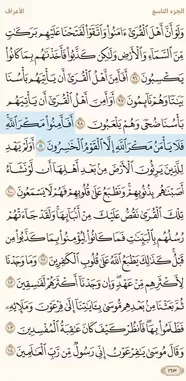 الجزء التاسع الأعراف
وَلَوْ أَنَّ أَهْلَ ٱلْقُرَىٰٓ ءَامَنُوا۟ وَٱتَّقَوْا۟ لَفَتَحْنَا عَلَيْهِم بَرَكَٰتٍ
مِّنَ ٱلسَّمَآءِ وَٱلْأَرْضِ وَلَٰكِن كَذَّبُوا۟ فَأَخَذْنَٰهُم بِمَا كَانُوا۟
يَكْسِبُونَ ٩٦ أَفَأَمِنَ أَهْلُ ٱلْقُرَىٰٓ أَن يَأْتِيَهُم بَأْسُنَا
بَيَٰتًا وَهُمْ نَآئِمُونَ ٩٧ أَوَأَمِنَ أَهْلُ ٱلْقُرَىٰٓ أَن يَأْتِيَهُم
بَأْسُنَا ضُحًى وَهُمْ يَلْعَبُونَ ٩٨ أَفَأَمِنُوا۟ مَكْرَ ٱللَّهِ
فَلَا يَأْمَنُ مَكْرَ ٱللَّهِ إِلَّا ٱلْقَوْمُ ٱلْخَٰسِرُونَ ٩٩ أَوَلَمْ يَهْدِ
لِلَّذِينَ يَرِثُونَ ٱلْأَرْضَ مِنۢ بَعْدِ أَهْلِهَآ أَن لَّوْ نَشَآءُ
أَصَبْنَٰهُم بِذُنُوبِهِمْ وَنَطْبَعُ عَلَىٰ قُلُوبِهِمْ فَهُمْ لَا يَسْمَعُونَ ١٠٠
تِلْكَ ٱلْقُرَىٰ نَقُصُّ عَلَيْكَ مِنْ أَنۢبَآئِهَا وَلَقَدْ جَآءَتْهُمْ
رُسُلُهُم بِٱلْبَيِّنَٰتِ فَمَا كَانُوا۟ لِيُؤْمِنُوا۟ بِمَا كَذَّبُوا۟ مِن
قَبْلُ كَذَٰلِكَ يَطْبَعُ ٱللَّهُ عَلَىٰ قُلُوبِ ٱلْكَٰفِرِينَ ١٠١ وَمَا وَجَدْنَا
لِأَكْثَرِهِم مِّنْ عَهْدٍ وَإِن وَجَدْنَآ أَكْثَرَهُمْ لَفَٰسِقِينَ ١٠٢
ثُمَّ بَعَثْنَا مِنۢ بَعْدِهِم مُّوسَىٰ بِـَٔايَٰتِنَآ إِلَىٰ فِرْعَوْنَ وَمَلَإِي۟هِۦ
فَظَلَمُوا۟ بِهَا فَٱنظُرْ كَيْفَ كَانَ عَٰقِبَةُ ٱلْمُفْسِدِينَ ١٠٣
وَقَالَ مُوسَىٰ يَٰفِرْعَوْنُ إِنِّى رَسُولٌ مِّن رَّبِّ ٱلْعَٰلَمِينَ ١٠٤
١٦٣